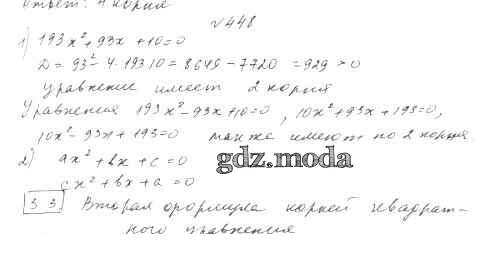 Ответ: 4 корня
№448
1) 193x² + 93x + 10 = 0
D = 93² - 4·193·10 = 8649 - 7720 = 929 > 0
Уравнение имеет 2 корня
Уравнения 193x² - 93x + 10 = 0, 10x² + 93x + 193 = 0,
10x² - 93x + 193 = 0 также имеют по 2 корня.
2) ax² + bx + c = 0
gdz.moda
cx² + bx + a = 0
33. Вторая формула корней квадрат-
ного уравнения